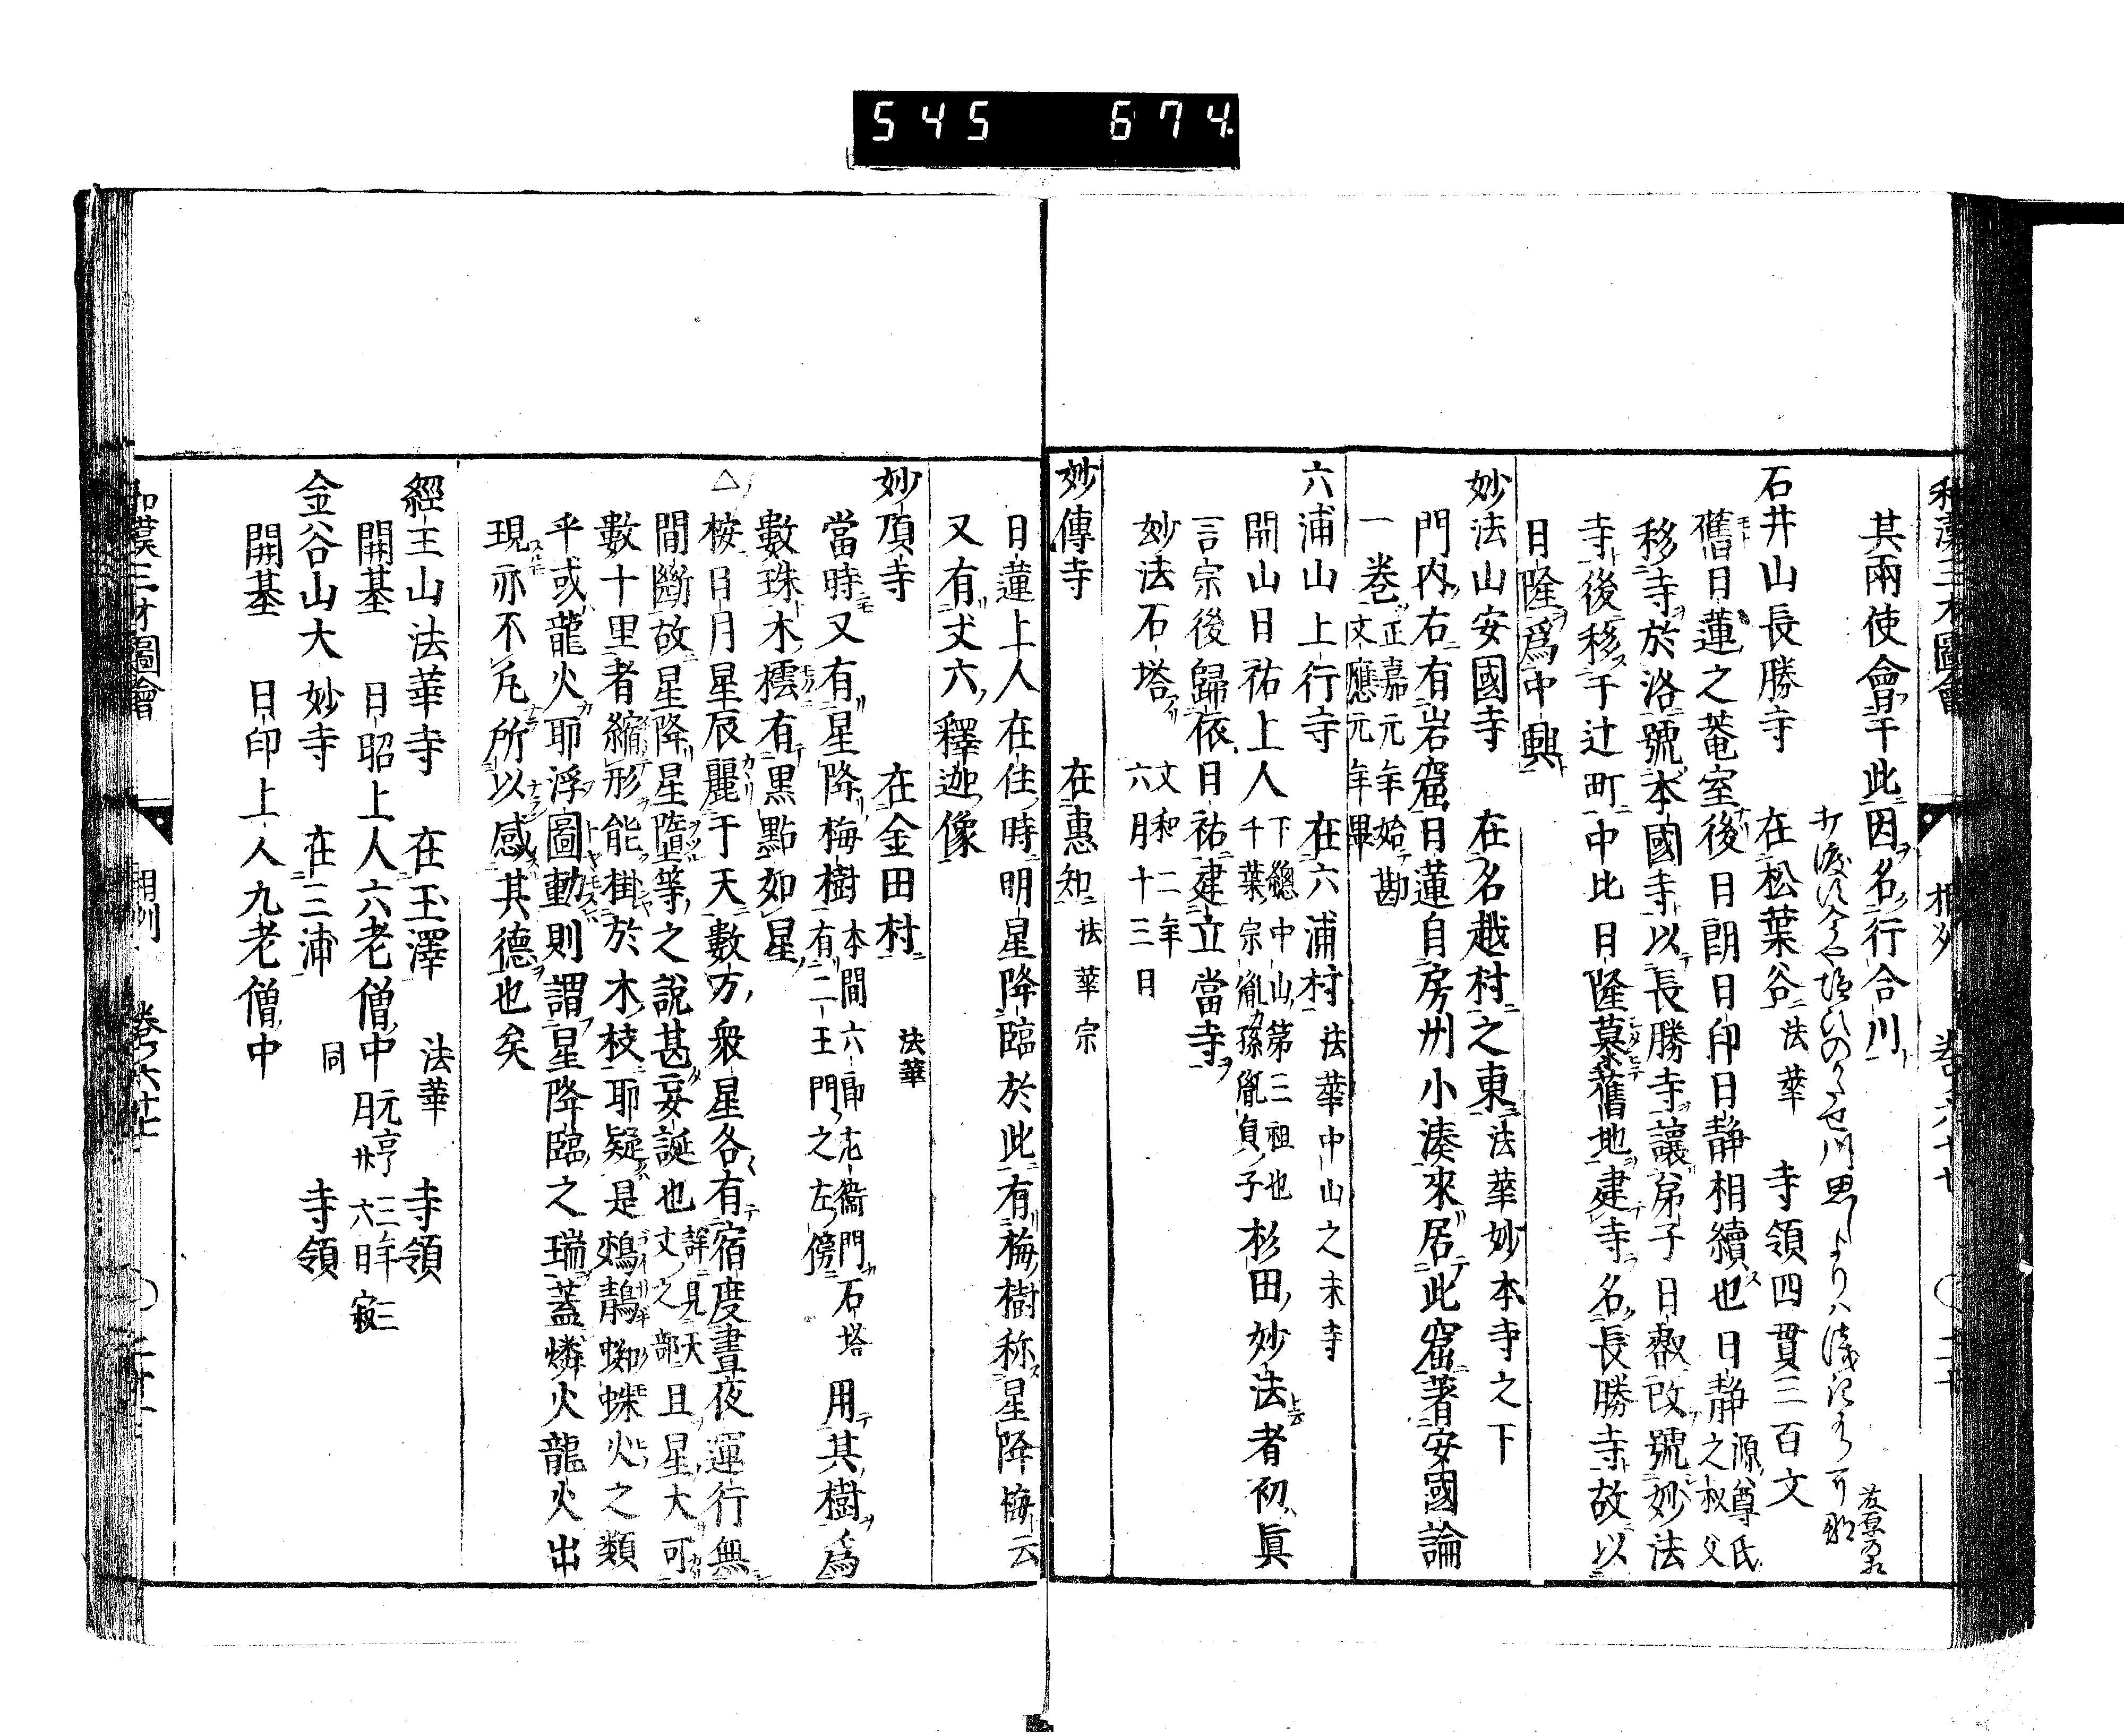 545 674
和漢三才圖會 相州 卷六十七
其兩使會于此因名行合川
石井山長勝寺 在松葉谷 法華 寺領四貫三百文
舊日蓮之菴室後日朗日印日靜相續也日靜源尊氏之叔父
移寺於洛號本國寺以長勝寺讓弟子日叡改號妙法
寺後移于辻町中比日隆慕舊地建寺名長勝寺故以
日隆爲中興
妙法山安國寺 在名越村之東 法華妙本寺之下
門内右有岩窟日蓮自房州小湊來居此窟著安國論
一卷 正嘉元年始勘 文應元年畢
六浦山上行寺 在六浦村 法華中山之末寺
開山日祐上人 下總中山第三祖也 千葉宗胤孫胤貞子 杉田妙法者初眞
言宗後歸依日祐建立當寺
妙法石塔 文和二年 六月十三日
妙傳寺 在惠知 法華宗
日蓮上人在住時明星降臨於此有梅樹称星降梅云
又有丈六釋迦像
妙頂寺 在金田村 法華
當時又有星降梅樹 本間六郎左衞門石塔 有二王門之左傍 用其樹爲
數珠木橒有黒點如星
△桉日月星辰麗于天數万衆星各有宿度晝夜運行無
間斷故星降星墮等之說甚妄誕也 詳見天文之部 且星大可
數十里者縮形能掛於木枝耶疑是鵁鶄蜘蛛火之類
乎或龍火耶浮圖動則謂星降臨之瑞蓋燐火龍火出
現亦不凡所以感其德也矣
經王山法華寺 在玉澤 法華 寺領
開基 日昭上人六老僧中 元亨三年三月廿六日寂
金谷山大妙寺 在三浦 同 寺領
開基 日印上人九老僧中
和漢三才圖會 相州 卷六十七